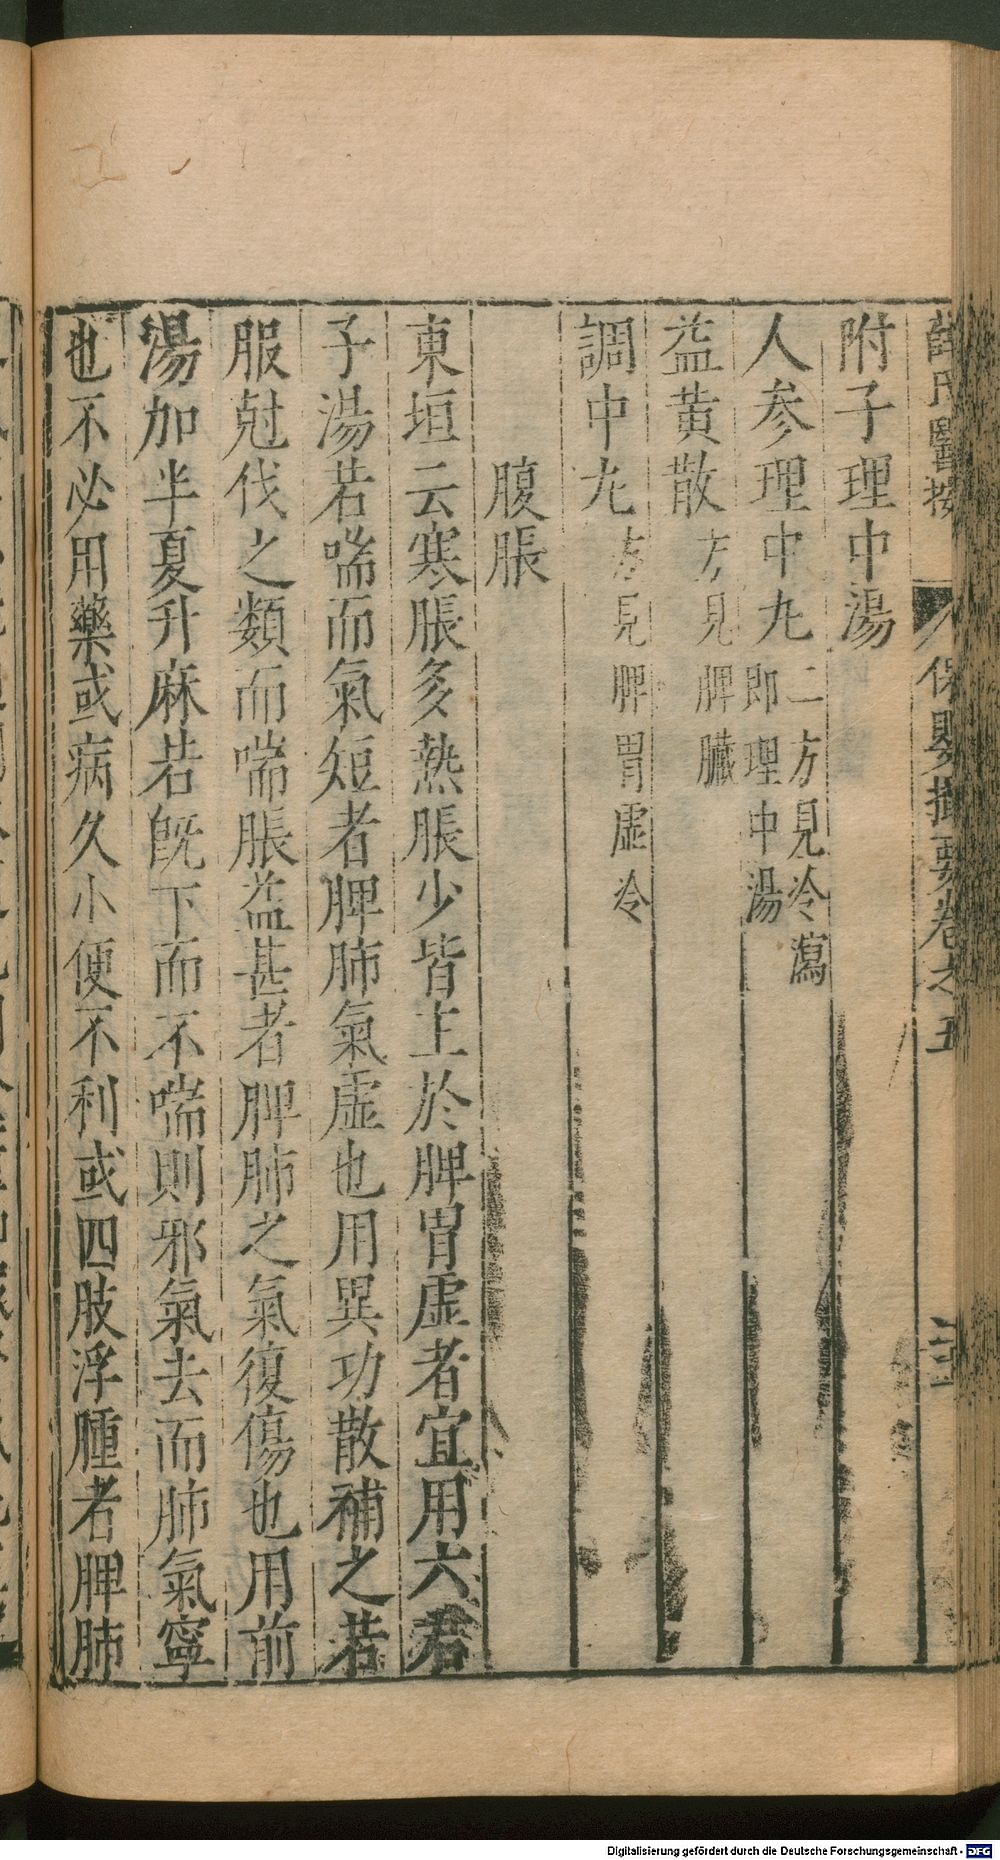 薛氏醫按 保嬰撮要卷之五
附子理中湯
人參理中丸 二方見冷瀉
即理中湯
益黃散 方見脾臟
調中丸 方見脾胃虛冷
腹脹
東垣云寒脹多熱脹少皆主於脾胃虛者宜用六君
子湯若喘而氣短者脾肺氣虛也用異功散補之若
服尅伐之類而喘脹益甚者脾肺之氣復傷也用前
湯加半夏升麻若旣下而不喘則邪氣去而肺氣寧
也不必用藥或病久小便不利或四肢浮腫者脾肺
Digitalisierung gefördert durch die Deutsche Forschungsgemeinschaft - DFG